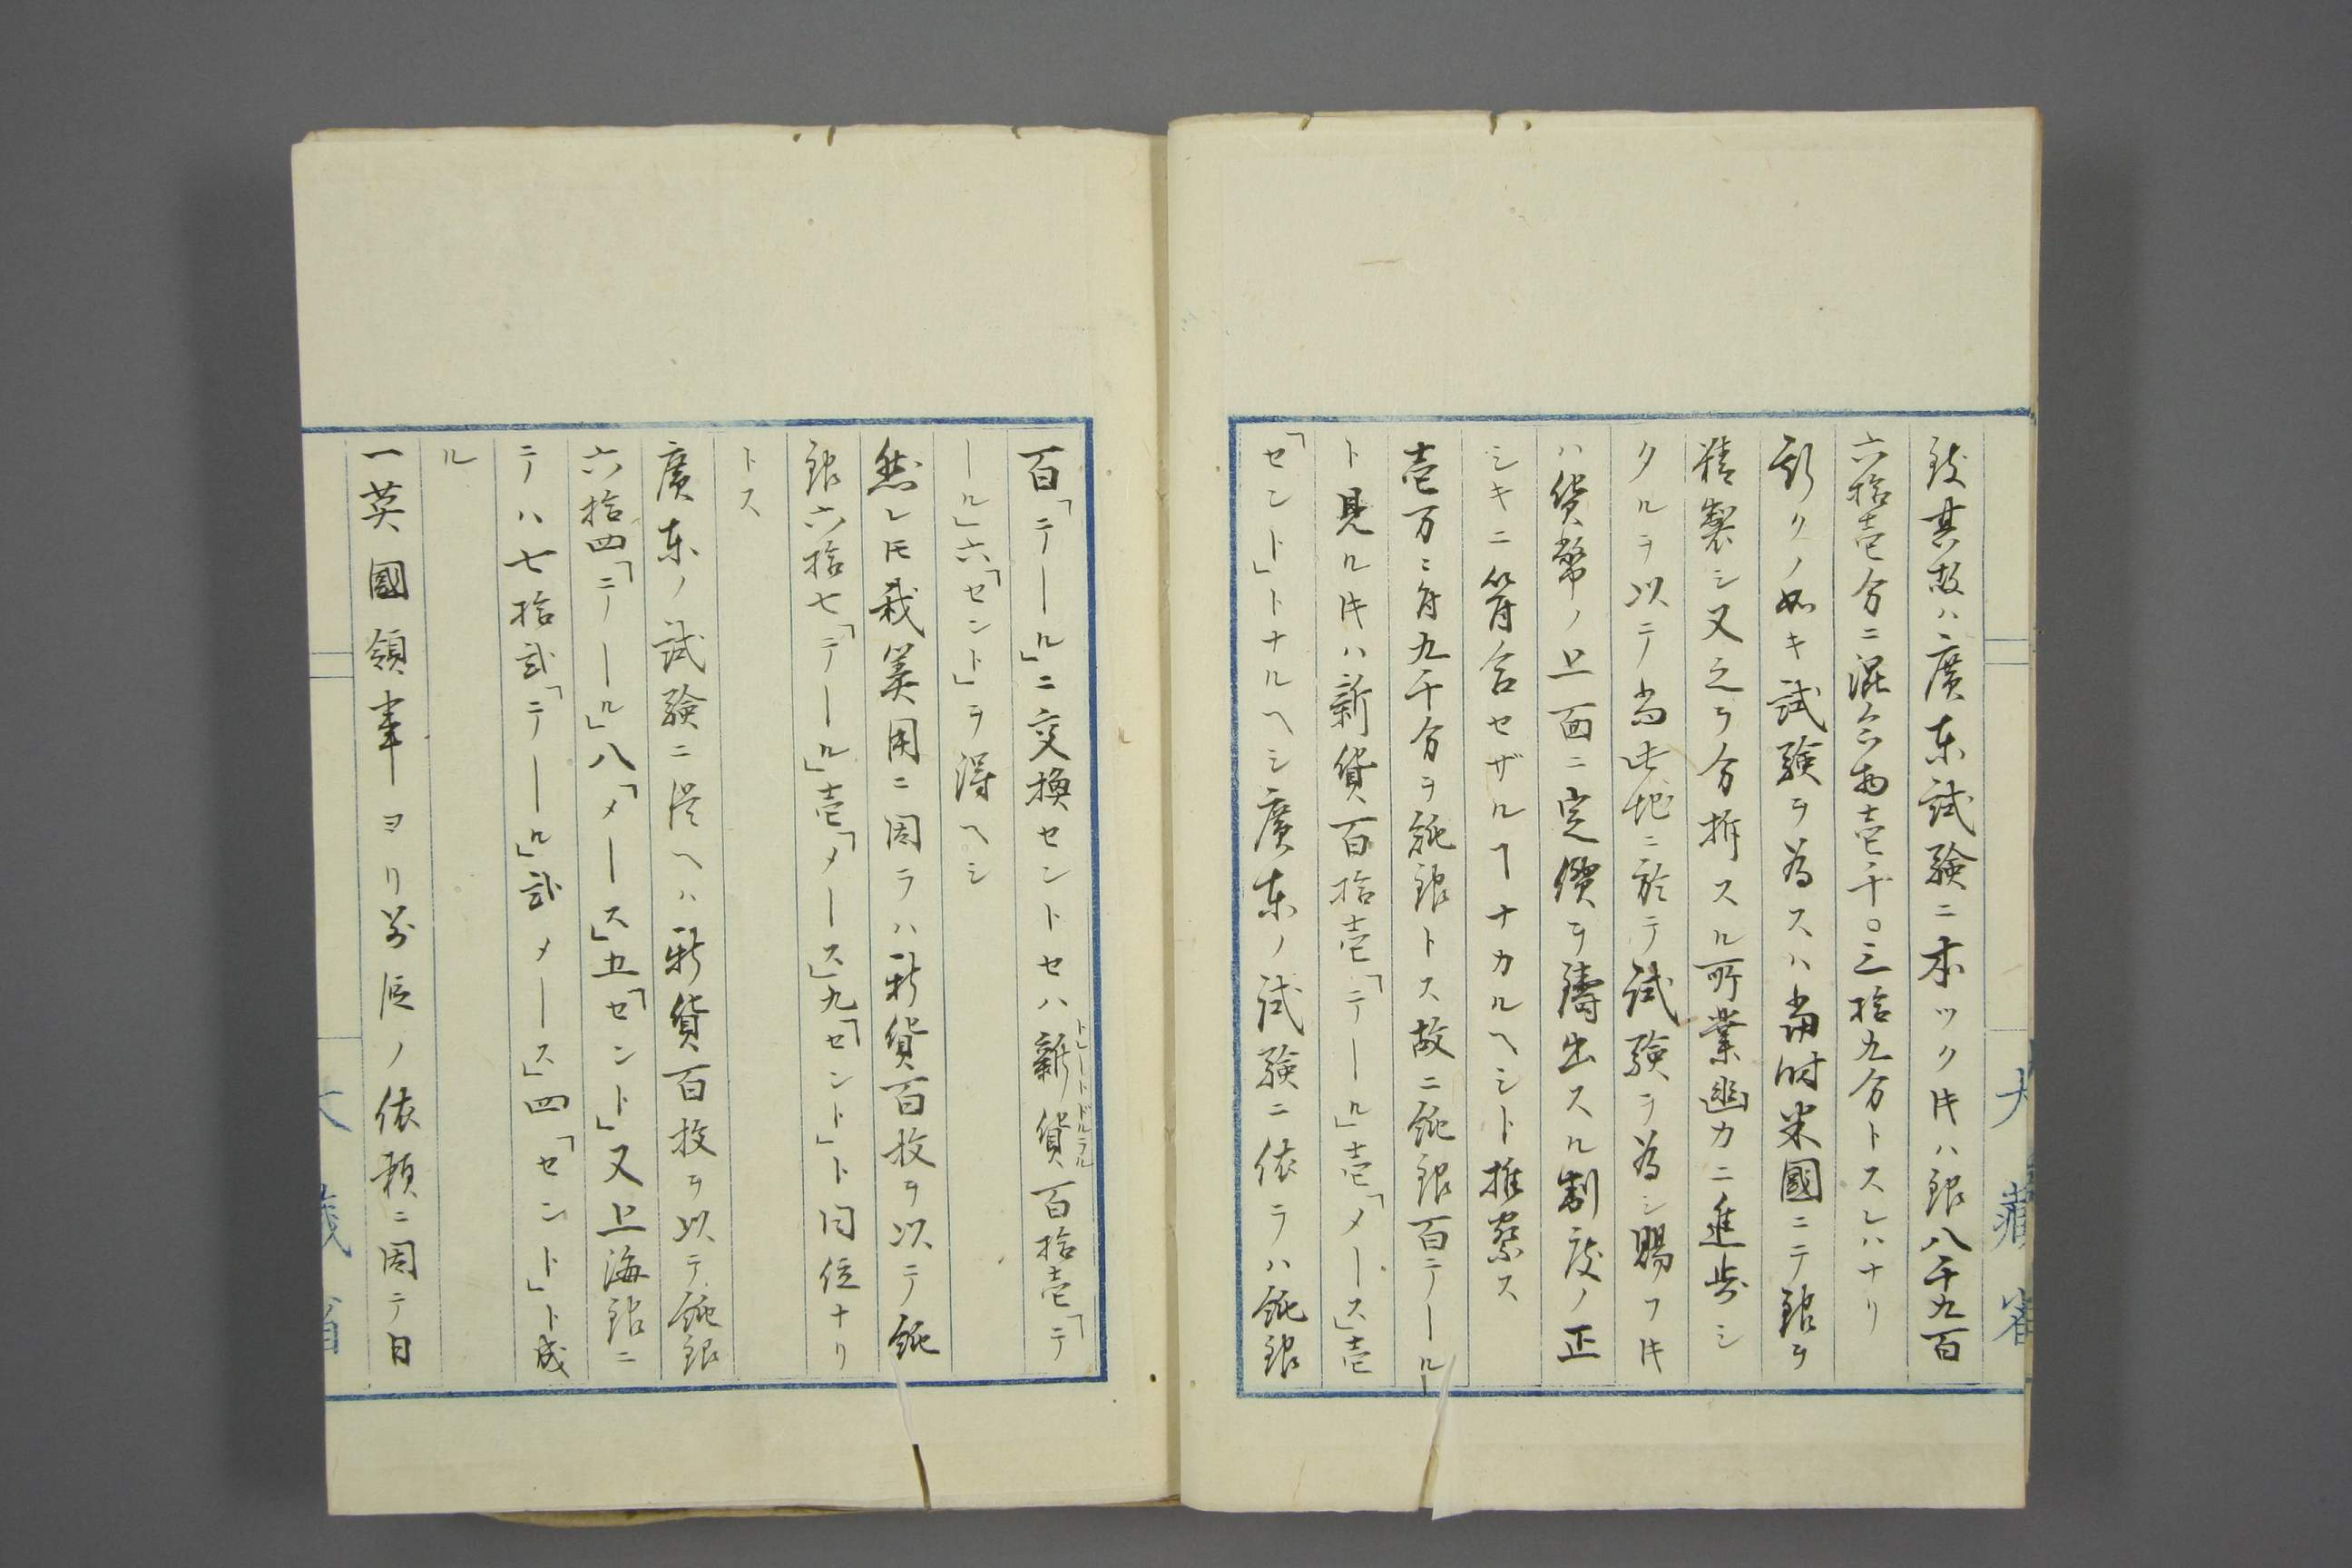 致其故ハ廣東試驗ニ本ツク𪜈ハ銀八千九百
六拾壱分ニ混合物壱千〇三拾九分トスレハナリ
斯クノ如キ試驗ヲ為スハ當時米國ニテ銀ヲ
精製シ又之ヲ分拆スル所業迅カニ進歩シ
タルヲ以テ尚此地ニ於テ試驗ヲ為シ賜フ𪜈
ハ貨幣ノ上面ニ定價ヲ鑄出スル制度ノ正
シキニ符合セザルヿナカルヘシト推察ス
壱万ニ付九千分ヲ純銀トス故ニ純銀百テール
ト見ル𪜈ハ新貨百拾壱「テール」壱「メース」壱
「セント」トナルヘシ廣東ノ試驗ニ依ラハ純銀
大藏省
百「テール」ニ交換セントセハ新貨百拾壱「テ
トレートドルラル
ール」六「セント」ヲ得ヘシ
然レ𪜈我算用ニ因ラハ新貨百枚ヲ以テ純
銀六拾七「テール」壱「メース」九「セント」ト同位ナリ
トス
廣東ノ試驗ニ從ヘハ新貨百枚ヲ以テ純銀
六拾四「テール」八「メース」五「セント」又上海銀ニ
テハ七拾弐「テール」弐メース」四「セント」ト成
ル
一英國領事ヨリ前段ノ依頼ニ因テ日
大藏省